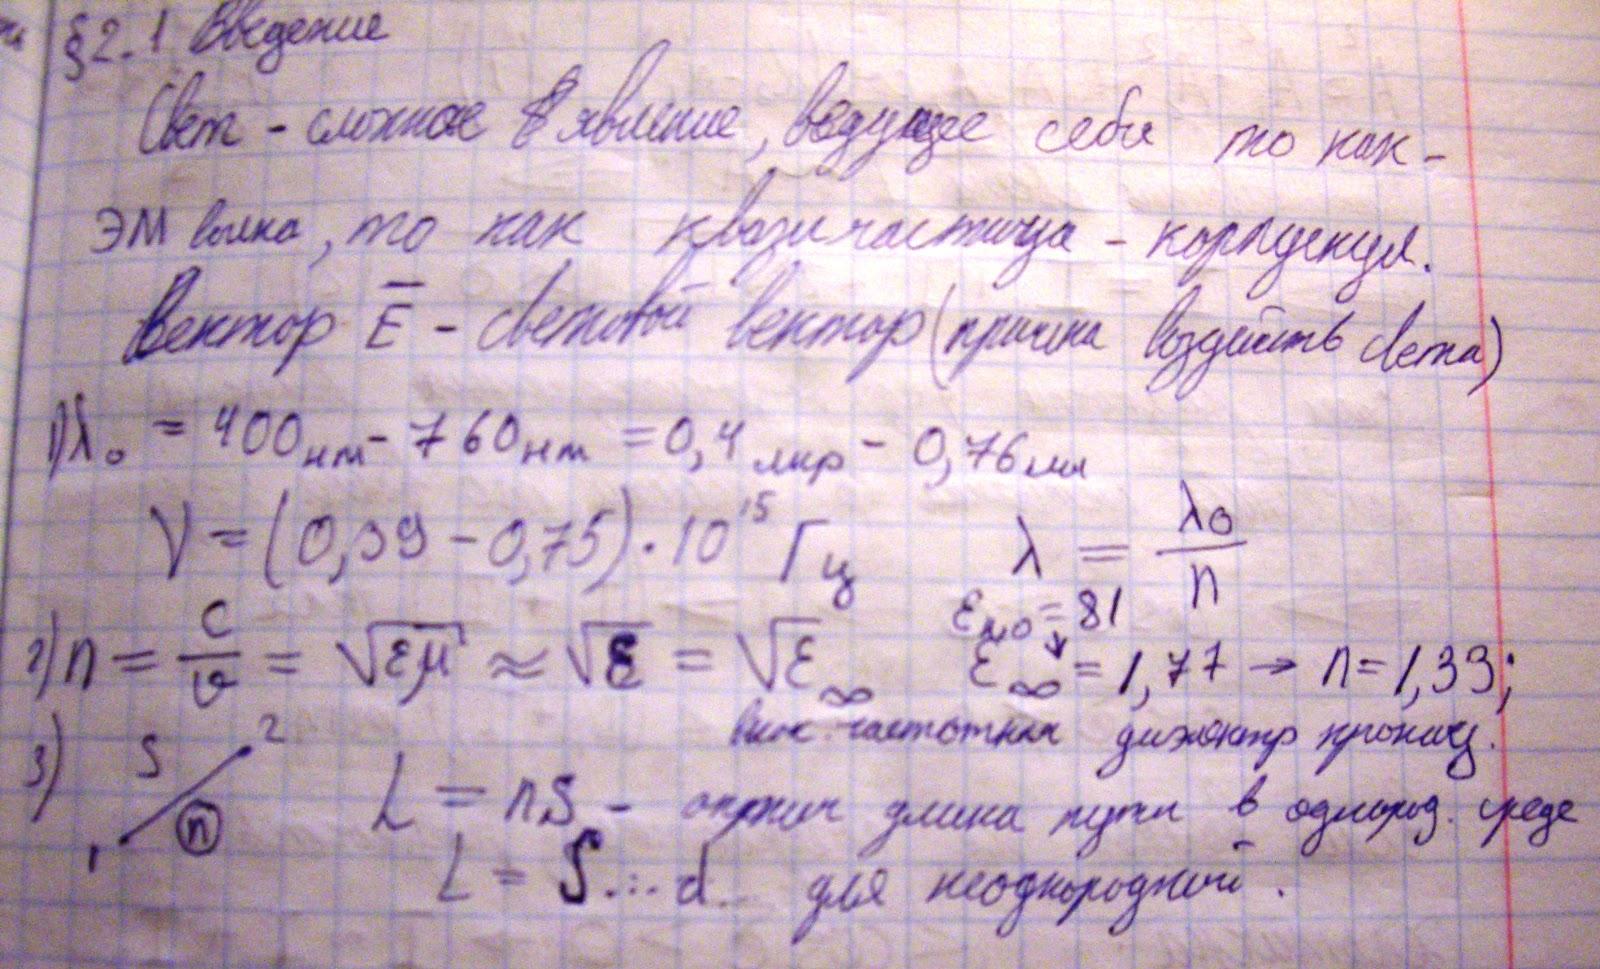 §2.1 Введение
Свет - сложное явление, ведущее себя то как -
ЭМ волна, то как квазичастица - корпускул.
Вектор E̅ - световой вектор (причина воздейств света)
1) λ₀ = 400нм - 760нм = 0,4 мкр - 0,76мк
ν = (0,39 - 0,75) · 10¹⁵ Гц λ = λ₀/n
εно = 81
2) n = c/v = √εμ ≈ √ε = √ε∞ ε∞ = 1,77 → n = 1,33;
выс. частотная диэлектр прониц.
3) 1 S 2 n L = nS - оптич длина пути в однород. среде
L = ∫...d... для неоднородной.